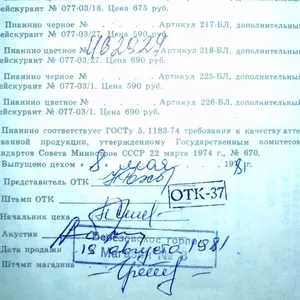 ейскурант № 077-03/18. Цена 675 руб.
Пианино черное № Артикул 217-БЛ, дополнительный
ейскурант № 077-03/27. Цена 590 руб.
Пианино цветное № Артикул 218-БЛ, дополнительный
ейскурант № 077-03/27. Цена 690 руб.
Пианино черное № Артикул 225-БЛ, дополнительный
ейскурант № 077-03/1. Цена 590 руб.
Пианино цветное № Артикул 226-БЛ, дополнительный
ейскурант № 077-03/1. Цена 690 руб.
Пианино соответствует ГОСТу 5. 1183-74 требования к качеству аттес
ванной продукции, утвержденному Государственным комитетом
ндартов Совета Министров СССР 22 марта 1974 г., № 670.
Выпущено цехом мая
Представитель ОТК
ОТК-37
Штамп ОТК
Начальник цеха
Акустик
Березовское горпо
Дата продажи 19 августа 1981
Магазин № 8
Штамп магазина